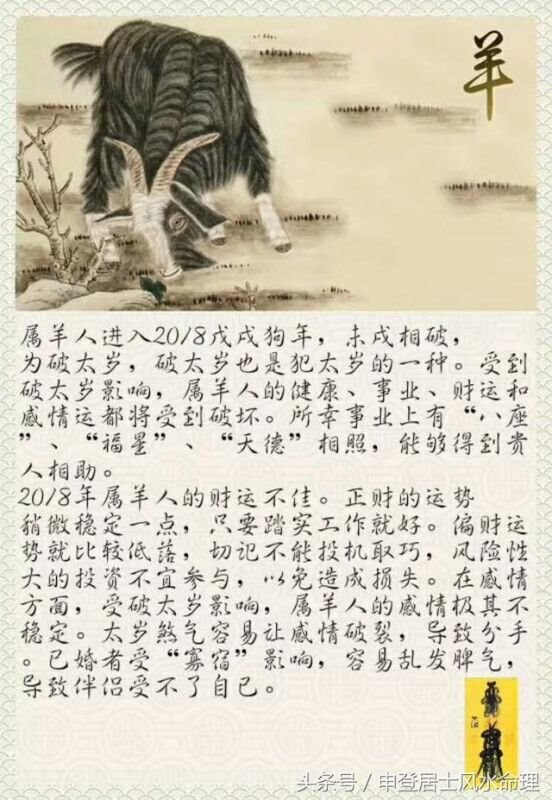 羊
属羊人进入2018戊戌狗年，未戌相破，
为破太岁，破太岁也是犯太岁的一种。受到
破太岁影响，属羊人的健康、事业、财运和
感情运都将受到破坏。所幸事业上有“八座
”、“福星”、“天德”相照，能够得到贵
人相助。
2018年属羊人的财运不佳。正财的运势
稍微稳定一点，只要踏实工作就好。偏财运
势就比较低落，切记不能投机取巧，风险性
大的投资不宜参与，以免造成损失。在感情
方面，受破太岁影响，属羊人的感情极其不
稳定。太岁煞气容易让感情破裂，导致分手
。已婚者受“寡宿”影响，容易乱发脾气，
导致伴侣受不了自己。
头条号／申登居士风水命理